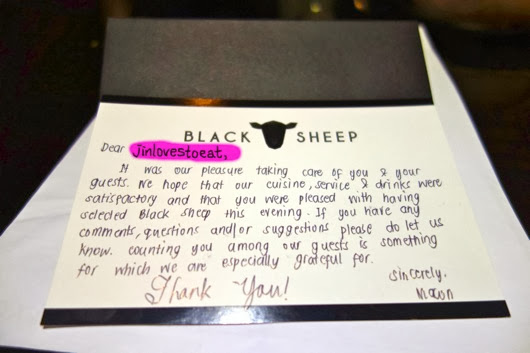 BLACK SHEEP
Dear Jinlovestoeat,
It was our pleasure taking care of you & your
guests. We hope that our cuisine, service & drinks were
satisfactory and that you were pleased with having
selected Black Sheep this evening. If you have any
comments, questions and/or suggestions please do let us
know. counting you among our guests is something
for which we are especially grateful for.
Thank You!
sincerely,